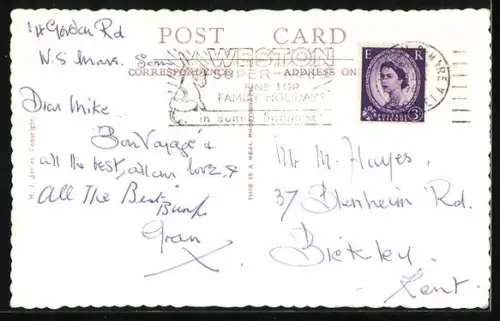 POST CARD
CORRESPONDENCE ADDRESS ON
WESTON
SUPER
FINE FOR
FAMILY HOLIDAYS
in sunny Somerset
E R
POSTAGE REVENUE
3D
Gordon Rd
W.S Mare. Som
Dear Mike.
Bon Voyage &
all the best, all our love, &
All The Best
Gran X
Mr M. Hayes,
37 Blenheim Rd.
Bickley.
Kent.
THIS IS A REAL PHOTOGRAPH
Copyright.